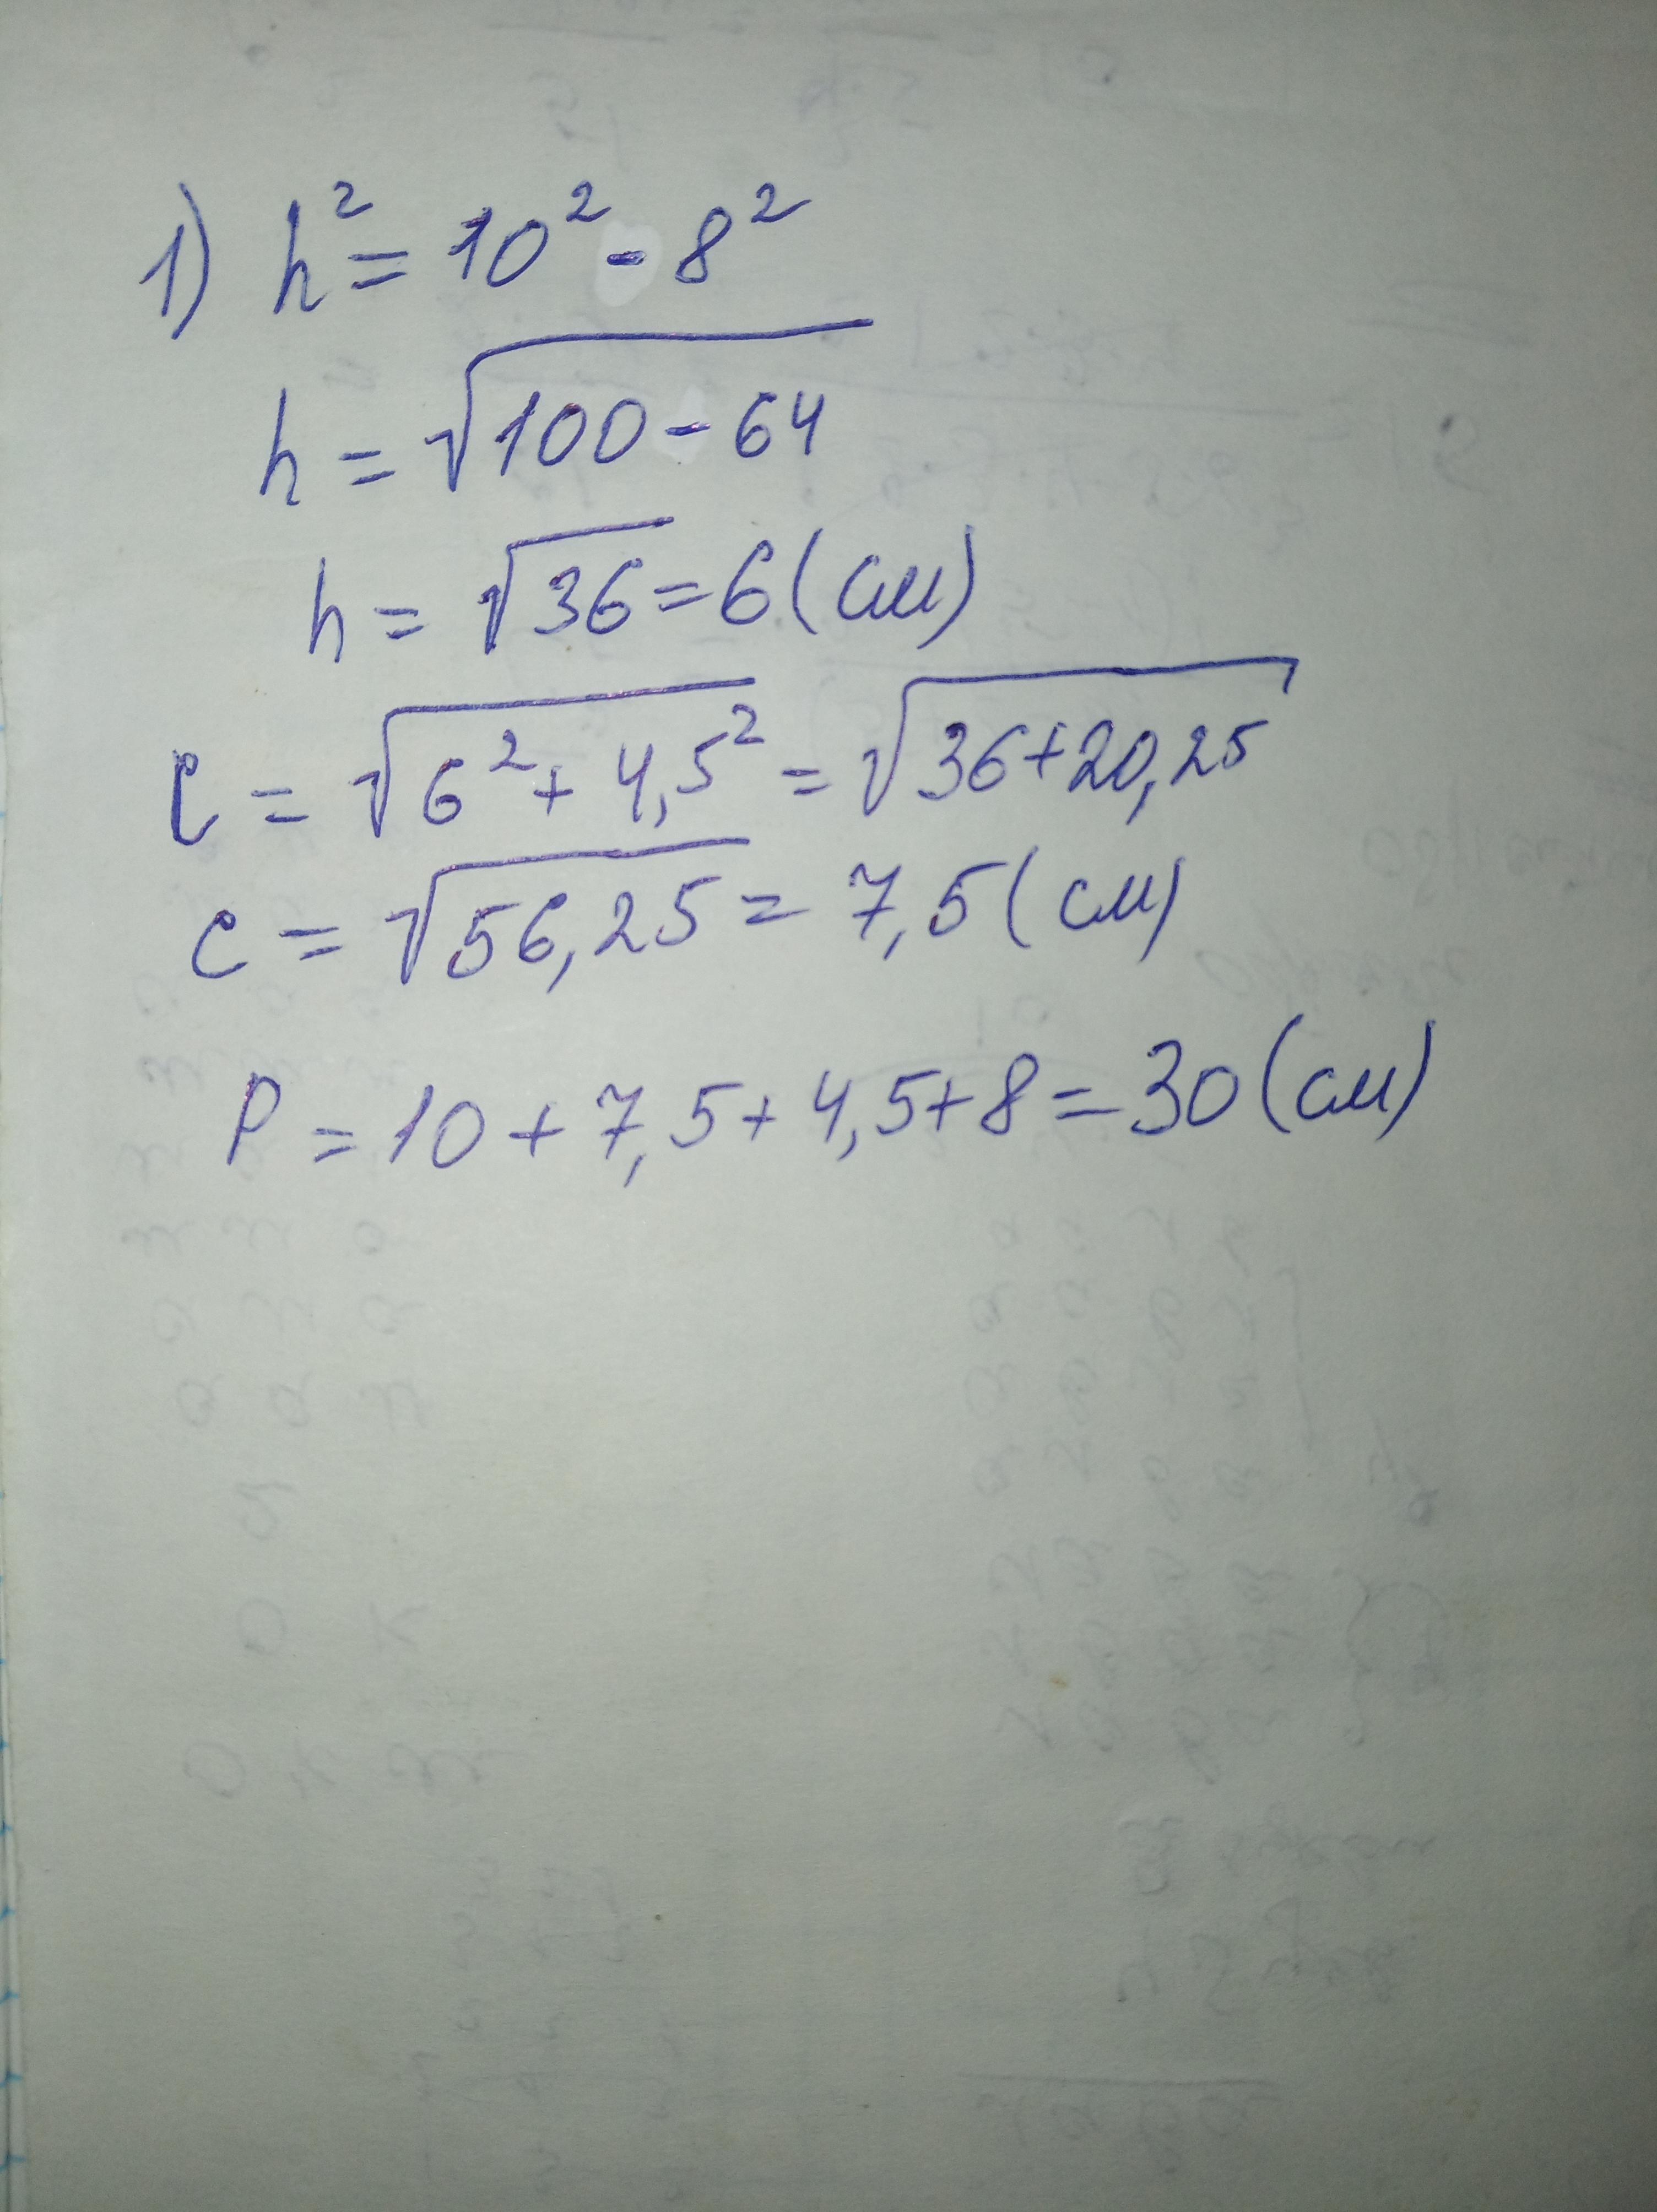 1) h² = 10² - 8²
h = √100 - 64
h = √36 = 6 (см)
c = √6² + 4,5² = √36 + 20,25
c = √56,25 = 7,5 (см)
P = 10 + 7,5 + 4,5 + 8 = 30 (см)